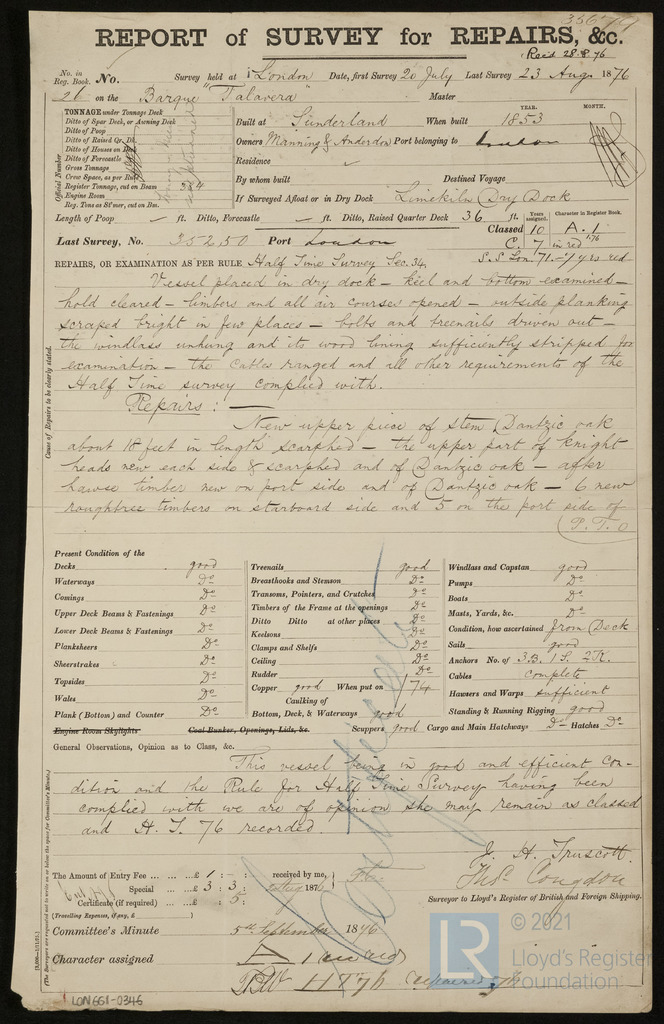 REPORT of SURVEY for REPAIRS, &c.
Rec'd 28.8.76
No. in Reg. Book. No. Survey held at London Date, first Survey 20 July Last Survey 23 Augt 1876
26 on the Barque "Talavera" Master
TONNAGE under Tonnage Deck
Ditto of Spar Deck, or Awning Deck
Ditto of Poop
Ditto of Raised Qr. Dk.
Ditto of Houses on Deck
Ditto of Forecastle
Gross Tonnage
Crew Space, as per Rule
Register Tonnage, cut on Beam
Engine Room
Reg. Tons as Stmr, cut on Bm.
Official Number
Built at Sunderland When built YEAR. 1853 MONTH.
Owners Manning & Anderdon Port belonging to London
Residence
By whom built Destined Voyage
If Surveyed Afloat or in Dry Dock Limekiln Dry Dock
Length of Poop ft. Ditto, Forecastle ft. Ditto, Raised Quarter Deck 36 ft.
Years assigned. Character in Register Book.
Classed 10 A. 1
C. 7 in red 1.76
Last Survey, No. 35250 Port London
S.S Lon 71.-7 yrs red
REPAIRS, OR EXAMINATION AS PER RULE Half Time Survey Sec. 34.
Vessel placed in dry dock – keel and bottom examined –
hold cleared – limbers and all air courses opened – outside planking
scraped bright in few places – bolts and treenails driven out –
the windlass unhung and its wood lining sufficiently stripped for
examination – the cables ranged and all other requirements of the
Half Time survey complied with.
Cause of Repairs to be clearly stated.
Repairs : –
New upper piece of stem (Dantzic oak
about 18 feet in length scarphed – the upper part of knight
heads new each side & scarphed and of Dantzic oak – after
hawse timber new on port side and of Dantzic oak – 6 new
roughtree timbers on starboard side and 5 on the port side of
P.T.O
Present Condition of the
Decks good
Waterways Do
Comings Do
Upper Deck Beams & Fastenings Do
Lower Deck Beams & Fastenings Do
Planksheers Do
Sheerstrakes Do
Topsides Do
Wales Do
Plank (Bottom) and Counter Do
Engine Room Skylights Coal Bunker, Openings, Lids, &c.
Treenails good
Breasthooks and Stemson Do
Transoms, Pointers, and Crutches Do
Timbers of the Frame at the openings Do
Ditto Ditto at other places Do
Keelsons Do
Clamps and Shelfs Do
Ceiling Do
Rudder Do
Copper good When put on 74
Caulking of
Bottom, Deck, & Waterways good
Scuppers good Cargo and Main Hatchways Do Hatches Do
Windlass and Capstan good
Pumps Do
Boats Do
Masts, Yards, &c. Do
Condition, how ascertained from Deck
Sails good
Anchors No. of 3 B. 1 S. 2 K.
Cables complete
Hawsers and Warps sufficient
Standing & Running Rigging good
General Observations, Opinion as to Class, &c.
This vessel being in good and efficient con-
dition and the Rule for Half Time Survey having been
complied with we are of opinion she may remain as classed
and H. T. 76 recorded.
J. H. Truscott.
Thos Congdon
Surveyor to Lloyd's Register of British and Foreign Shipping.
The Amount of Entry Fee £ 1 : - : received by me,
Special £ 3 : 3 : 1876
Certificate (if required) £ : 5 :
(Travelling Expenses, if any, £ )
Committee's Minute 5th September 1876
Character assigned
(The Surveyors are requested not to write on or below the space for Committee's Minute.)
LON661-0346
LR
© 2021
Lloyd's Register
Foundation